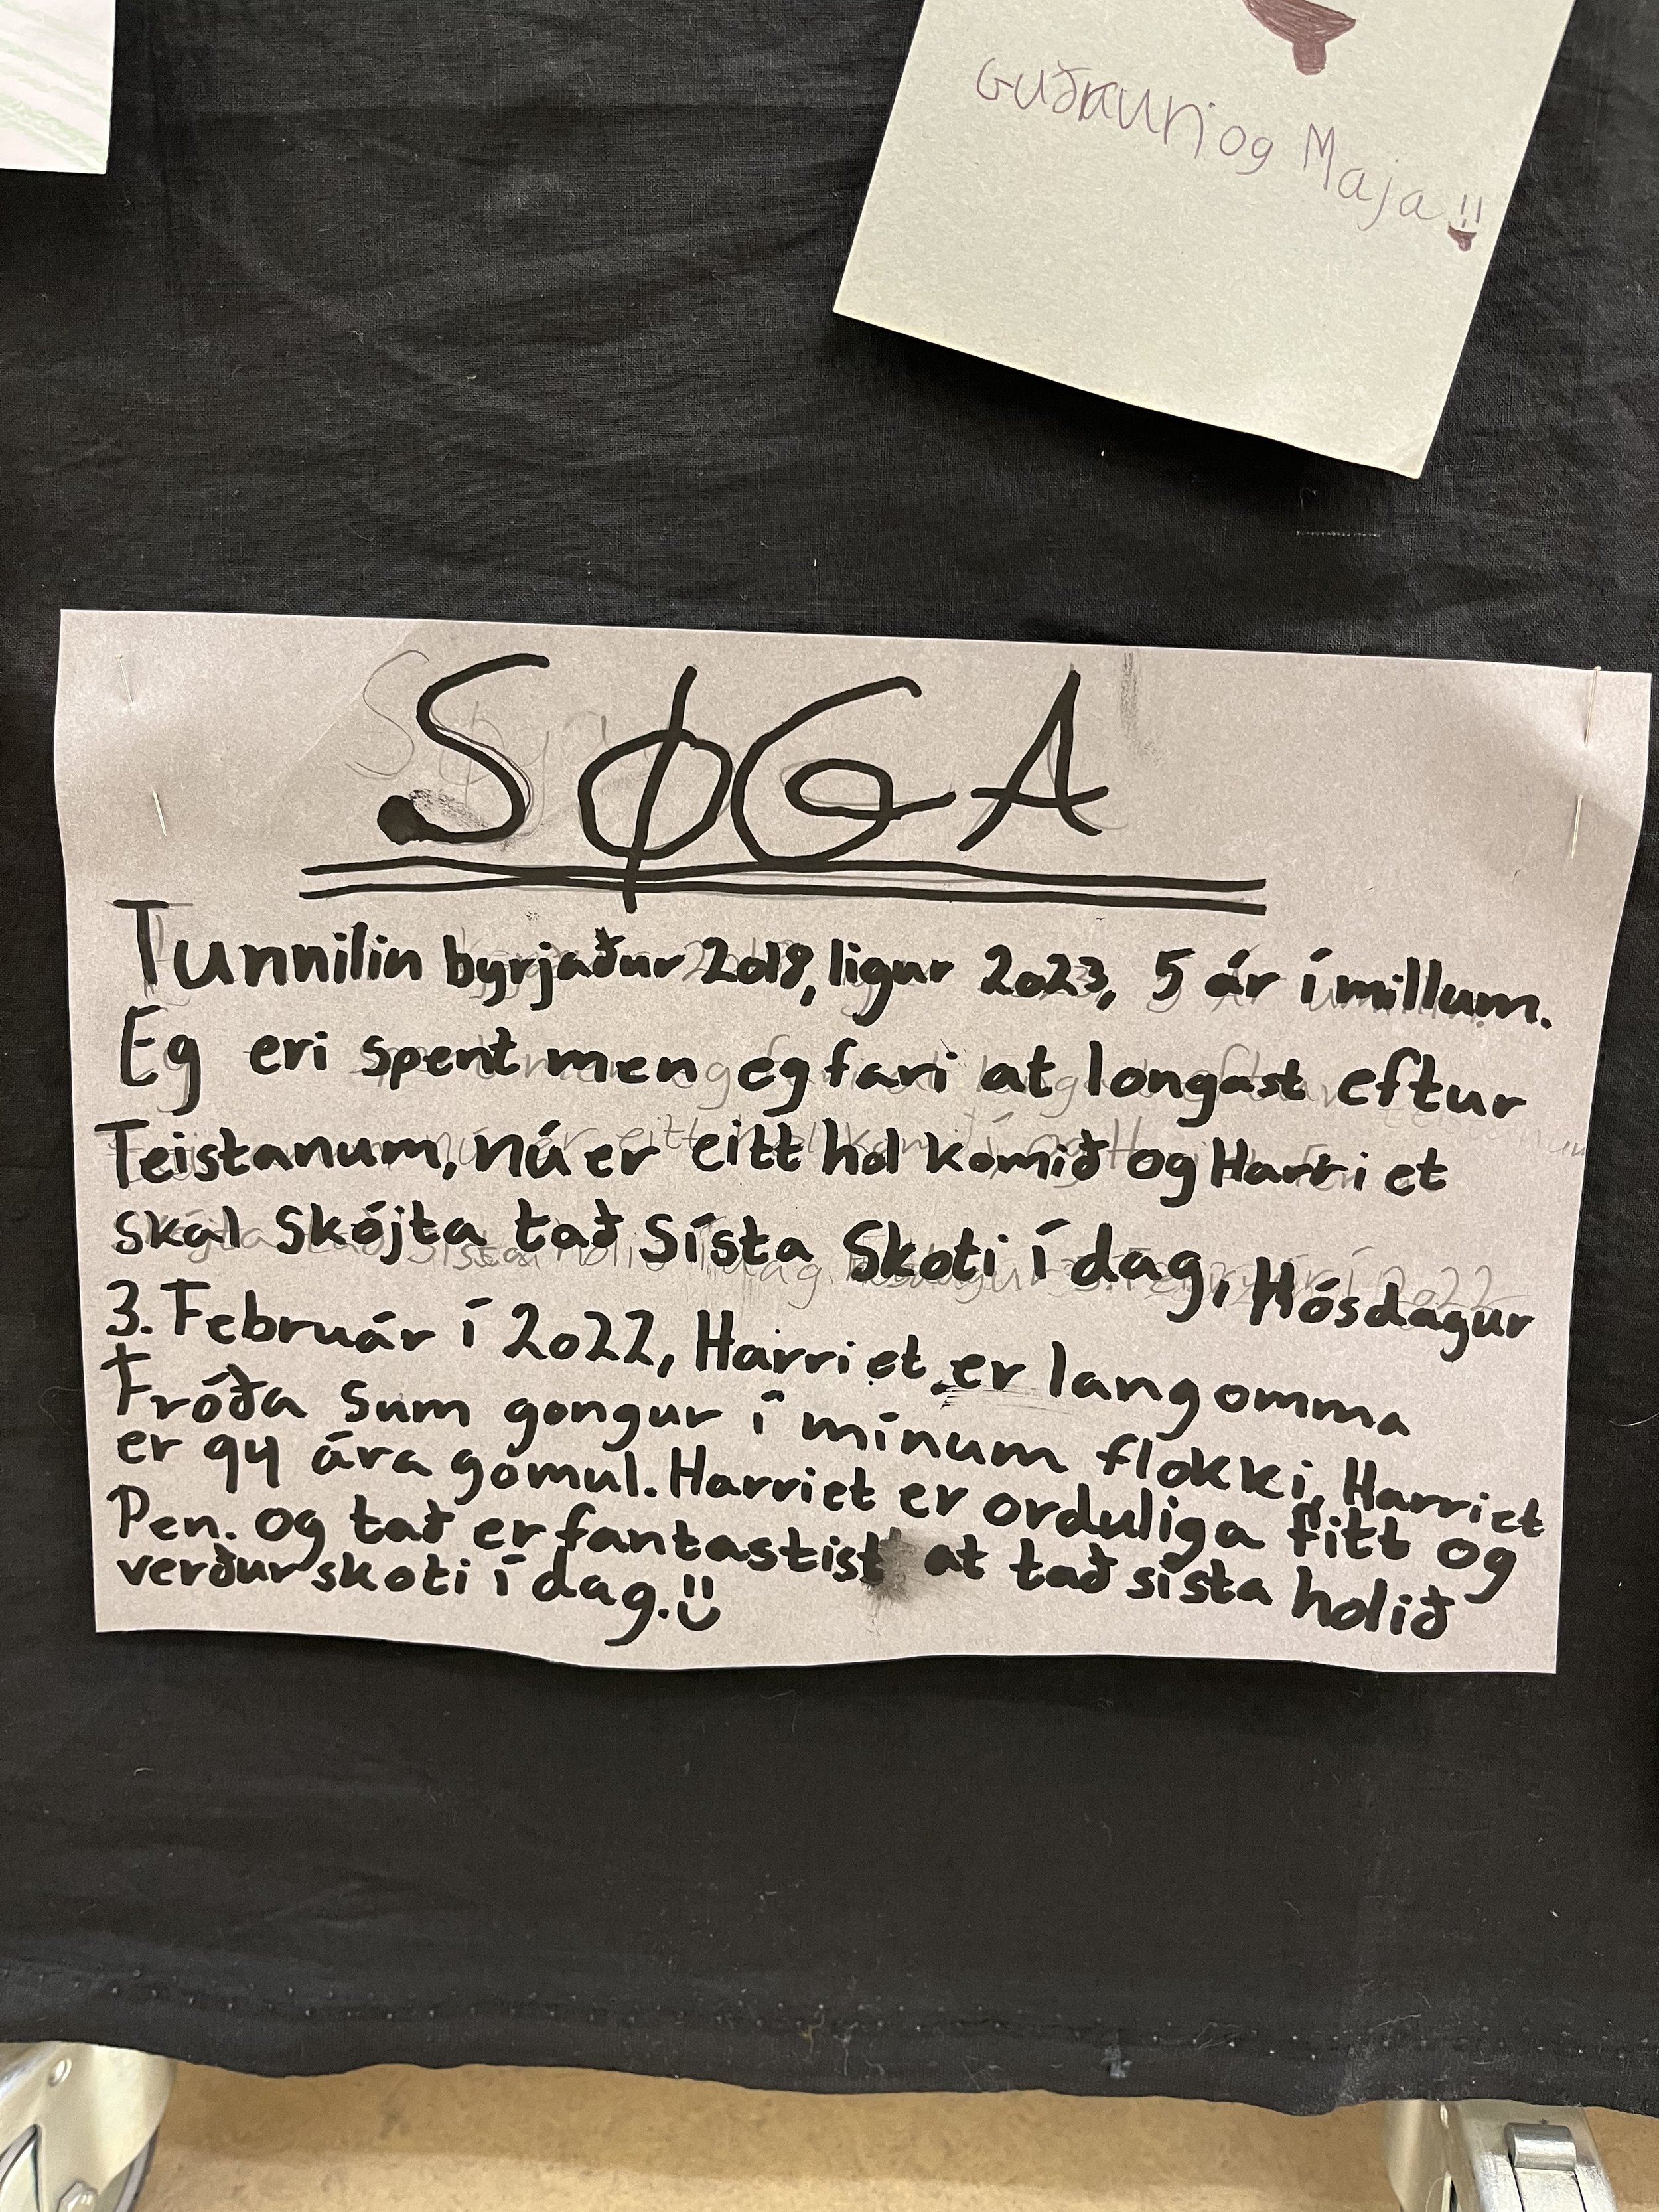 Guðrun og Maja!!
SØGA
Tunnilin byrjaður 2018, liður 2023, 5 ár ímillum.
Eg eri spent men eg fari at longast eftur
Teistanum, nú er eitt hol komið og Harriet
skal Skójta tað Sísta Skoti í dag, Hósdagur
3. Február í 2022, Harriet er langomma
Fróða sum gongur í mínum flokki, Harriet
er 94 ára gomul. Harriet er orduliga fitt og
Pen. og tað er fantastist at tað sísta holið
verður skoti í dag.